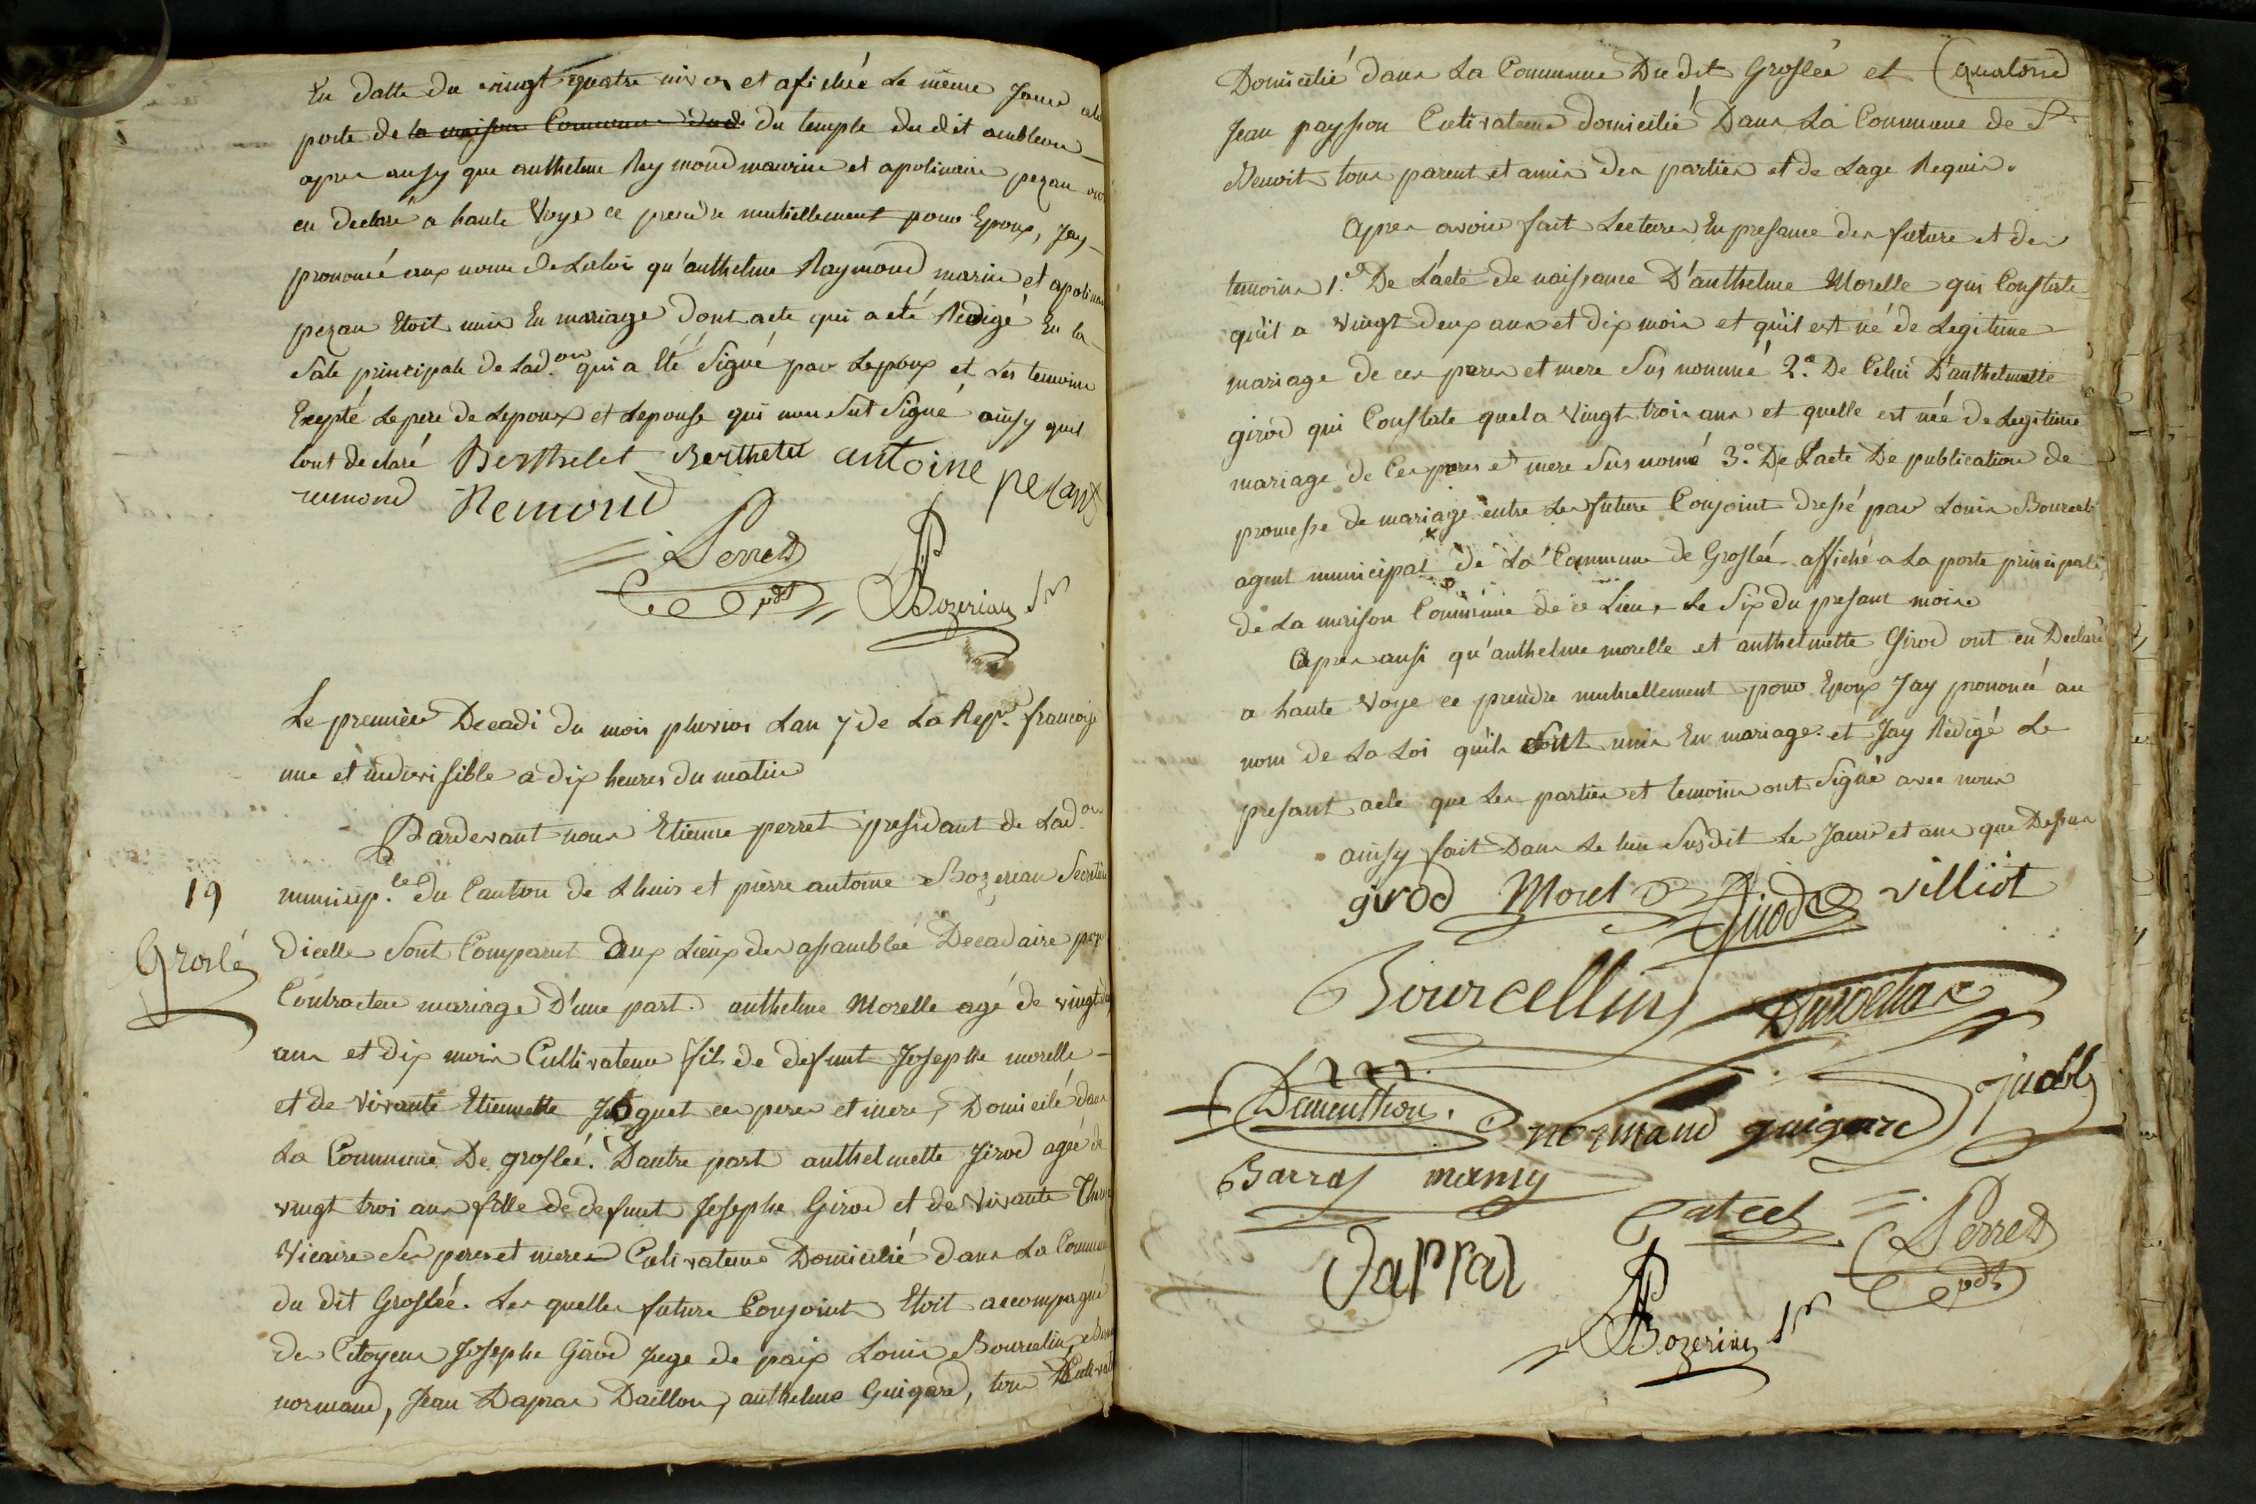 En datte du vingt quatre nivos et afichée Le même Jour a la
porte de la maison Commune dud. du temple du dit ambleon
apres ausy que anthelme Raymond maurin et apolinaire pezan ont
eu declaré a haute Voye ce prendre mutuellement pour Epoux, Jay
prononcé aux nom de La loi qu'anthelme Raymond marin et apolinaire
pezan Etoit unis En mariage dont acte qui a été Redigé En la
Sale principale de Lad.on qui a Eté Signé par Lepoux et Les temoins
Exepté Le pere de Lepoux et Lepouse qui non Sut Signé ainsy quil
lont declaré Berthelet Berthelet antoine pezant
remond Remond
Perret
pdt Bozerian Sre
Le premiere Decadi du mois pluvios Lan 7 de La Repe. francoise
une et indivisible a dix heures du matin
Pardevant nous Etienne perret presidant de Lad.on
municip.le du Canton de Lhuis et pierre antoine Bozerian Secretaire
19
dicelle Sont Comparut Aux Lieux des assamblée Decadaire pour
Groslé
Contracter mariage D'une part. anthelme Morelle agé de vingt deux
ans et dix mois Cultivateur fils de defunt Josephe morelle
et de vivante Etiennette Joguet ces peres et mere, Domicilé dans
La Commune De grosleé. Dautre part anthelmette Jirod ageé de
vingt trois ans fille de defunt Josephe Girod et de vivante
Vicaire Ses peres et meres Cultivateurs Domicilié dans La Commune
du dit Grosleé. Les quelles future Conjoint Etoit accompagné
des Citoyens Josephe Girod Juge de paix Louis Bourcelin,
normand, Jean Dapras Daillon, anthelme Guigard, tous Cultivat
Domicilié dans La Commune Du dit Grosleé et
Jean paysson Cultivateur domicilié Dans La Commune de St
Benoit tous parent et amis des parties et de Lage Requis.
Apres avoir fait Lecture En presance des future et des
temoins 1.o De L'acte de naissance D'anthelme Morelle qui Constate
qu'il a vingt deux ans et dix mois et qu'il est né de Legitime
mariage de ces peres et mere Sus nommé 2.o De Celui D'anthelmette
girod qui Constate quel a vingt trois ans et quelle est née de Legitime
mariage de Ces peres et mere Sus nomé 3.o De Lacte De publication de
promesse de mariage entre Les future Conjoint dressé par Louis Bourcelin
agent municipal de La Commune de Grosleé affiché a La porte principale
de La maison Commune de ce Lieu, Le Six du presant mois
Apres ausi qu'anthelme morelle et anthelmette Girod ont eu Declaré
a haute Voye ce prendre mutuellement pour Epoux Jay prononcé au
nom de La Loi qu'ils Sont unis En mariage. et Jay Redigé Le
presant acte que Les parties et temoins ont Signé avec nous
ainsy fait Dans Le lieu Susdit Le Jours et ans que Dessus
girod Morel Girod villiot
Bourcellin Durochat
Dementhon. normand guigard
Barras mamy
Perret
Daprar
pdt
Bozerian Sre